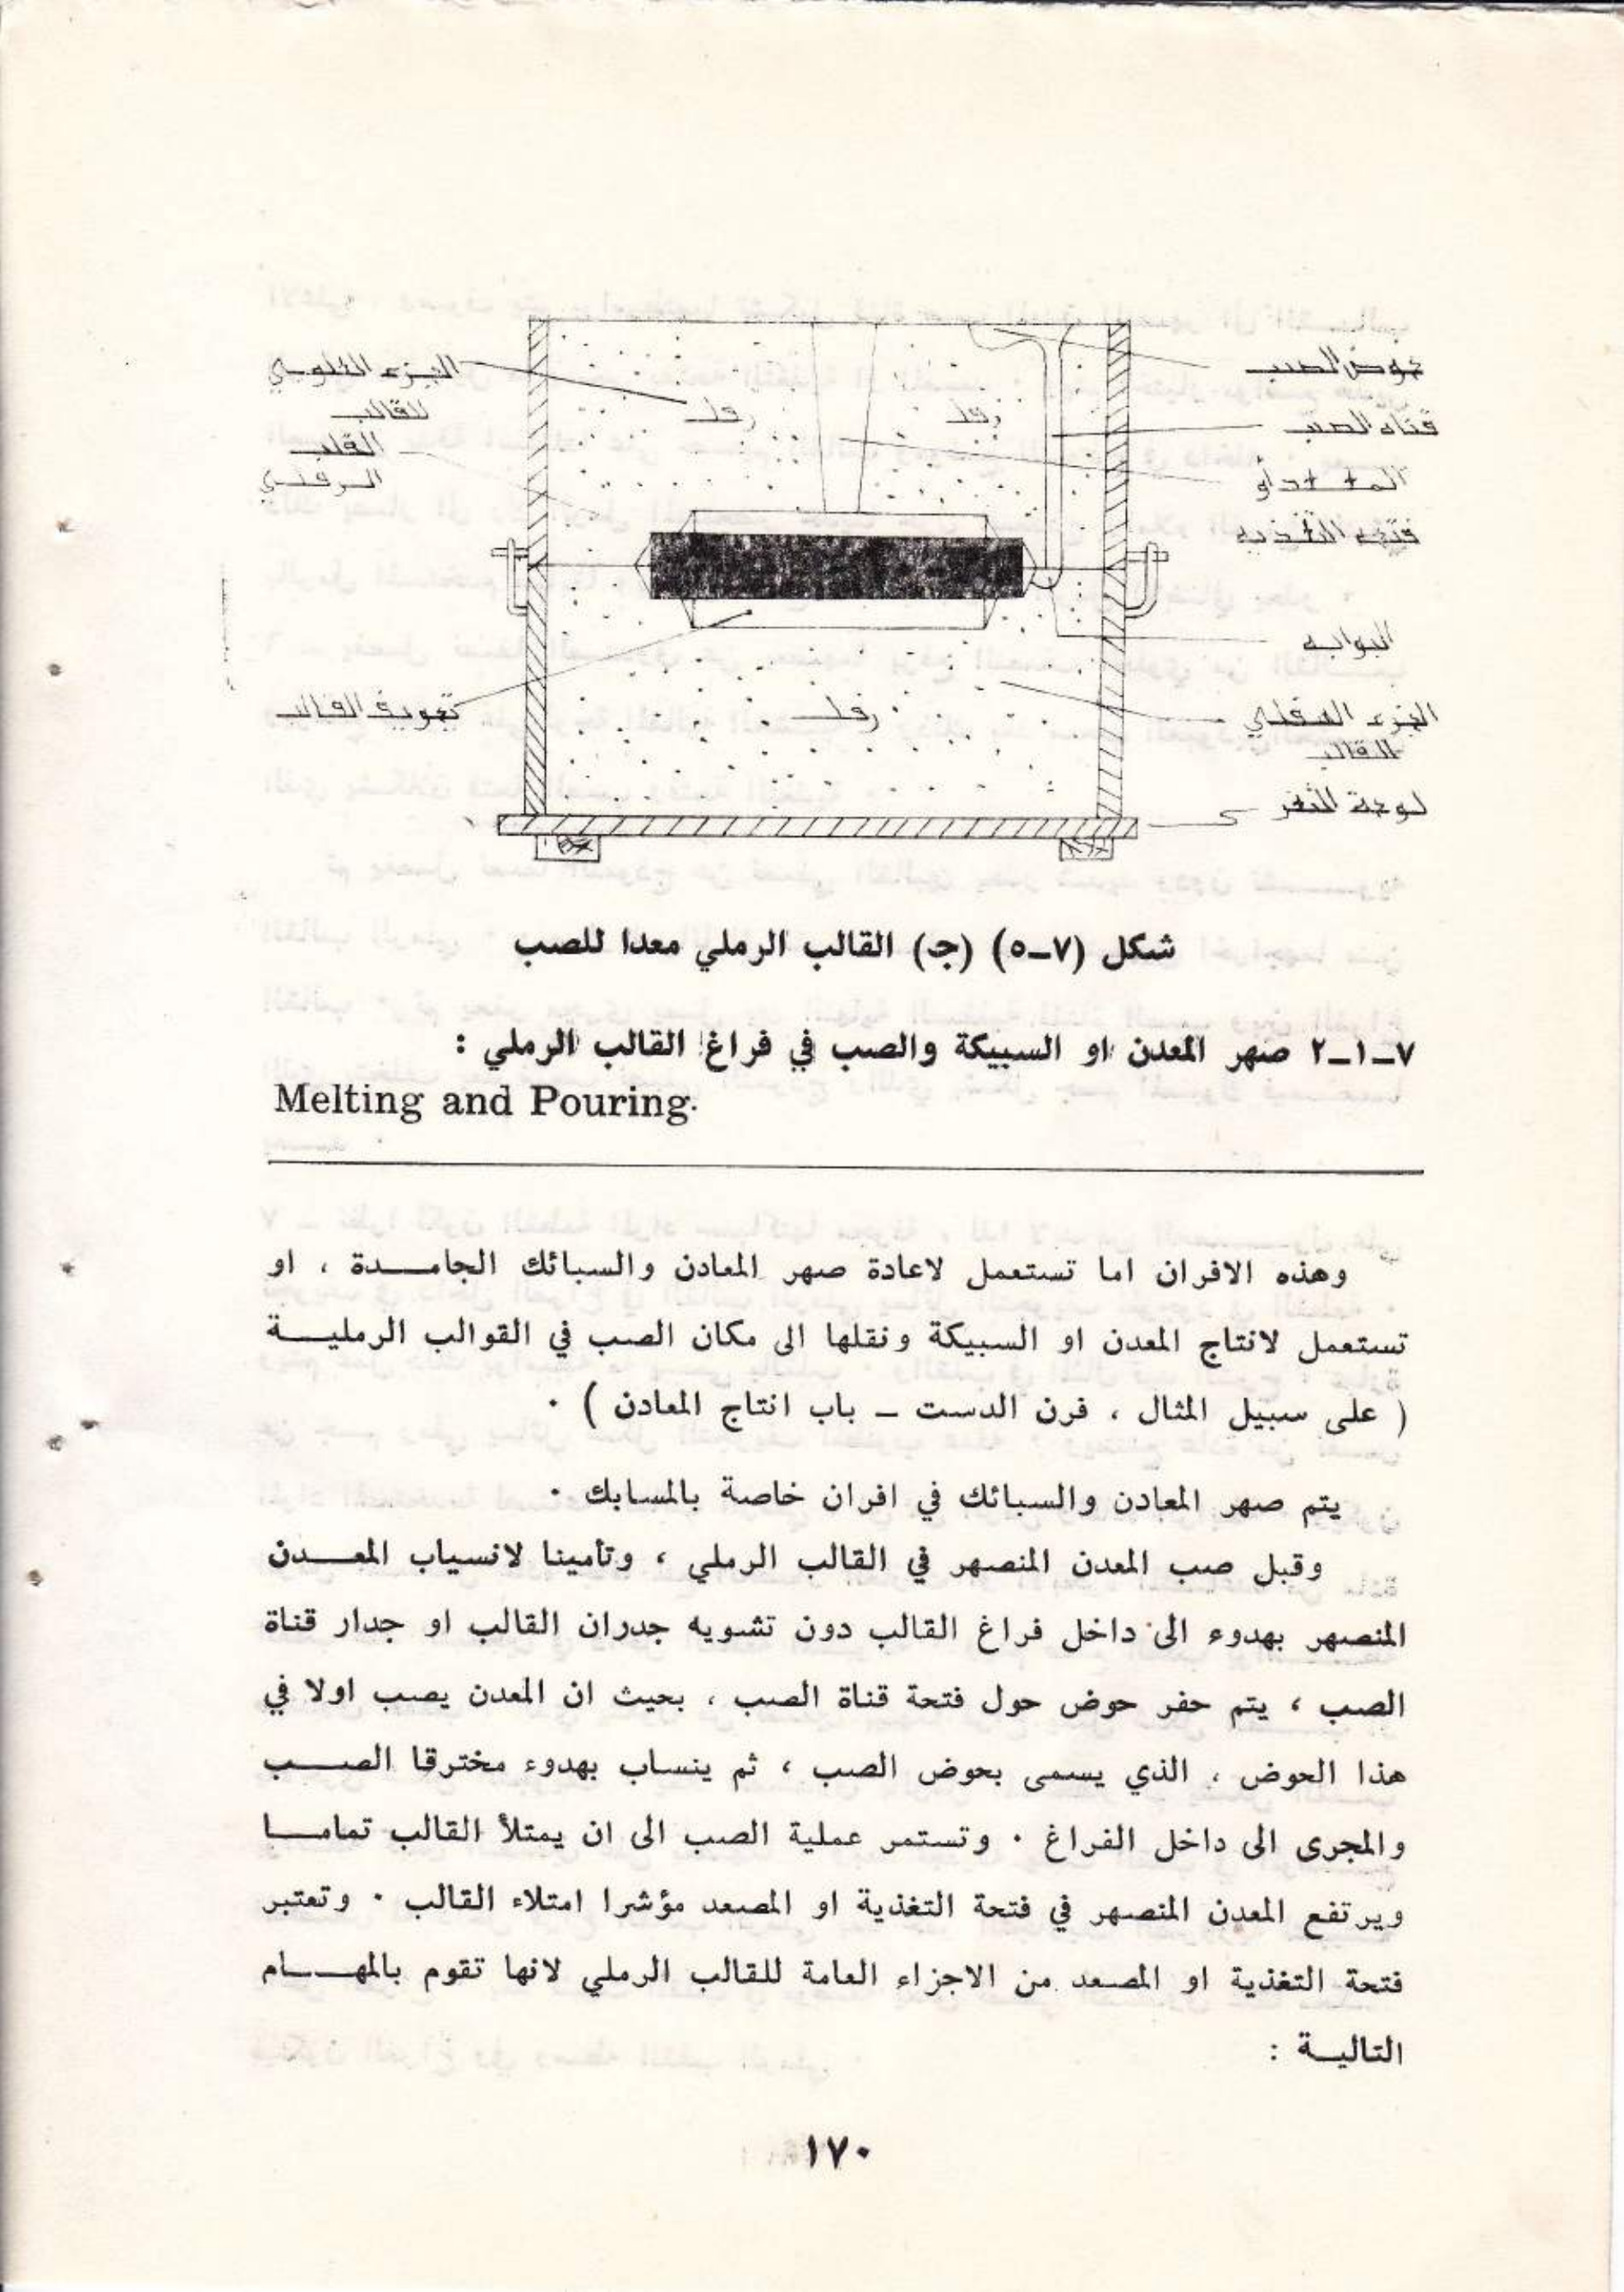 حوض الصب
الجزء العلوي
للقالب
رمل
رمل
قناه الصب
القلب
الرملي
المصعد أو
فتحه التغذيه
البوابه
تجويف القالب
رمل
الجزء السفلي
للقالب
لوحة
شكل (٧–٥) (جـ) القالب الرملي معدا للصب
٧–١–٢ صهر المعدن او السبيكة والصب في فراغ القالب الرملي :
Melting and Pouring.
وهذه الافران اما تستعمل لاعادة صهر المعادن والسبائك الجامـــدة ، او
تستعمل لانتاج المعدن او السبيكة ونقلها الى مكان الصب في القوالب الرمليـــة
( على سبيل المثال ، فرن الدست – باب انتاج المعادن ) ٠
يتم صهر المعادن والسبائك في افران خاصة بالمسابك ٠
وقبل صب المعدن المنصهر في القالب الرملي ، وتأمينا لانسياب المعـــدن
المنصهر بهدوء الى داخل فراغ القالب دون تشويه جدران القالب او جدار قناة
الصب ، يتم حفر حوض حول فتحة قناة الصب ، بحيث ان المعدن يصب اولا في
هذا الحوض ، الذي يسمى بحوض الصب ، ثم ينساب بهدوء مخترقا الصـــب
والمجرى الى داخل الفراغ ٠ وتستمر عملية الصب الى ان يمتلأ القالب تمامـــا
ويرتفع المعدن المنصهر في فتحة التغذية او المصعد مؤشرا امتلاء القالب ٠ وتعتبر
فتحة التغذية او المصعد من الاجزاء العامة للقالب الرملي لانها تقوم بالمهـــام
التاليــة :
١٧٠